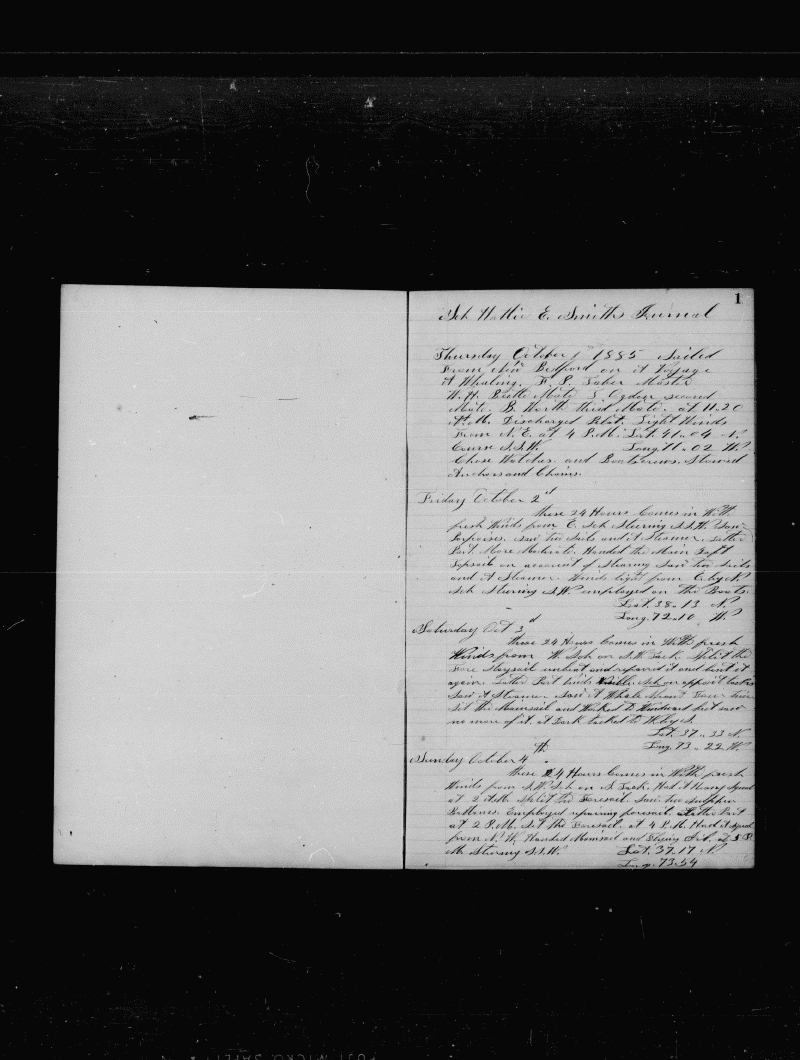 1
Sch Hattie E. Smiths Journal
Thursday October 1 1885 Sailed
From New Bedford on A Voyage
A Whaling. F. P. Taber Master
W. H. Mate J. Ogden second
Mate. B. Worth third Mate. at 11.20
A.M. Discharged Pilot. Light Winds
From N.E. at 4 P.M. Lat. 41.04 N.
Course S.S.W. Long 71.02 W.
Chose Watches and Boatscrews. Stowed
Anchors and Chains.
Friday October 2d
these 24 Hours Comes in With
fresh Winds from E. Sch Stering S.S.W. Saw
Porpoises. saw two Sails and A Steamer. Latter
Part More Moderate. Handed the Main Gaft
Topsail on account of Stearing Saw two sails
and A Steamer. Winds light from E. by N.
Sch Stering S.W. employed on the Boats.
Lat. 38.13 N.
Long. 72.10 W.
Saturday Oct 3d
these 24 Hours Comes in With fresh
Winds from W. Sch on S.W. Tack. Split the
Fore Staysail unbent and repaired it and bent it
again. Latter Part winds Sch on oppsit tacks
Saw A Steamer. Saw A Whale
Set the Mainsail and Worked to Windward but saw
no more of it. at Dark tacked to W. by S.
Lat. 37.33 N.
Long. 73.22 W.
Sunday October 4th
these 24 Hours Comes in With fresh
Winds from S.W. Sch on S. Tack. Had A Heavy Squal
at 2 A.M. Split the Foresail. Saw two Sulpher
Bottoms. Employed repairing foresail. Latter Part
at 2 P.M. Set the Foresail. at 4 P.M. Had A Squal
from N.W. Handed Mainsail and Flying Jib. at
Stering S.S.W. Lat. 37.17 N.
Long. 73.54